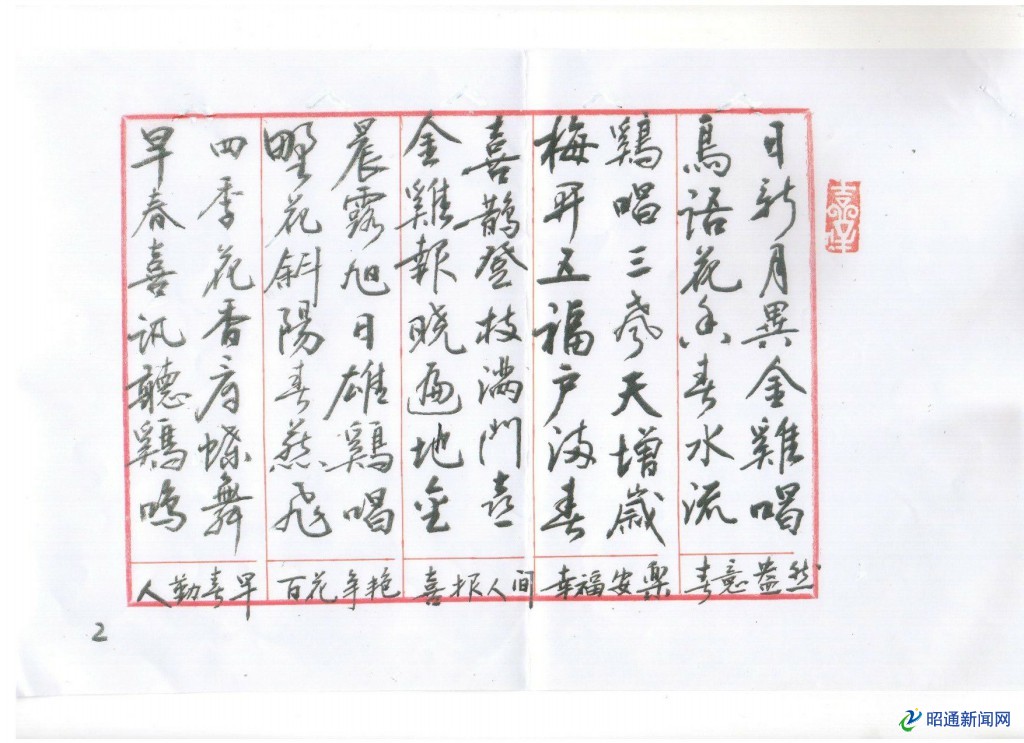 日新月異金雞唱
鳥語花香春水流
春意盎然
鷄唱三聲天增歲
梅開五福户满春
幸福安樂
喜鵲登枝满門喜
金雞報曉遍地金
喜报人间
晨露旭日雄鷄唱
野花斜陽春燕飛
百花争艳
四季花香引蝶舞
早春喜讯聽鷄鳴
人勤春早
2
昭通新闻网